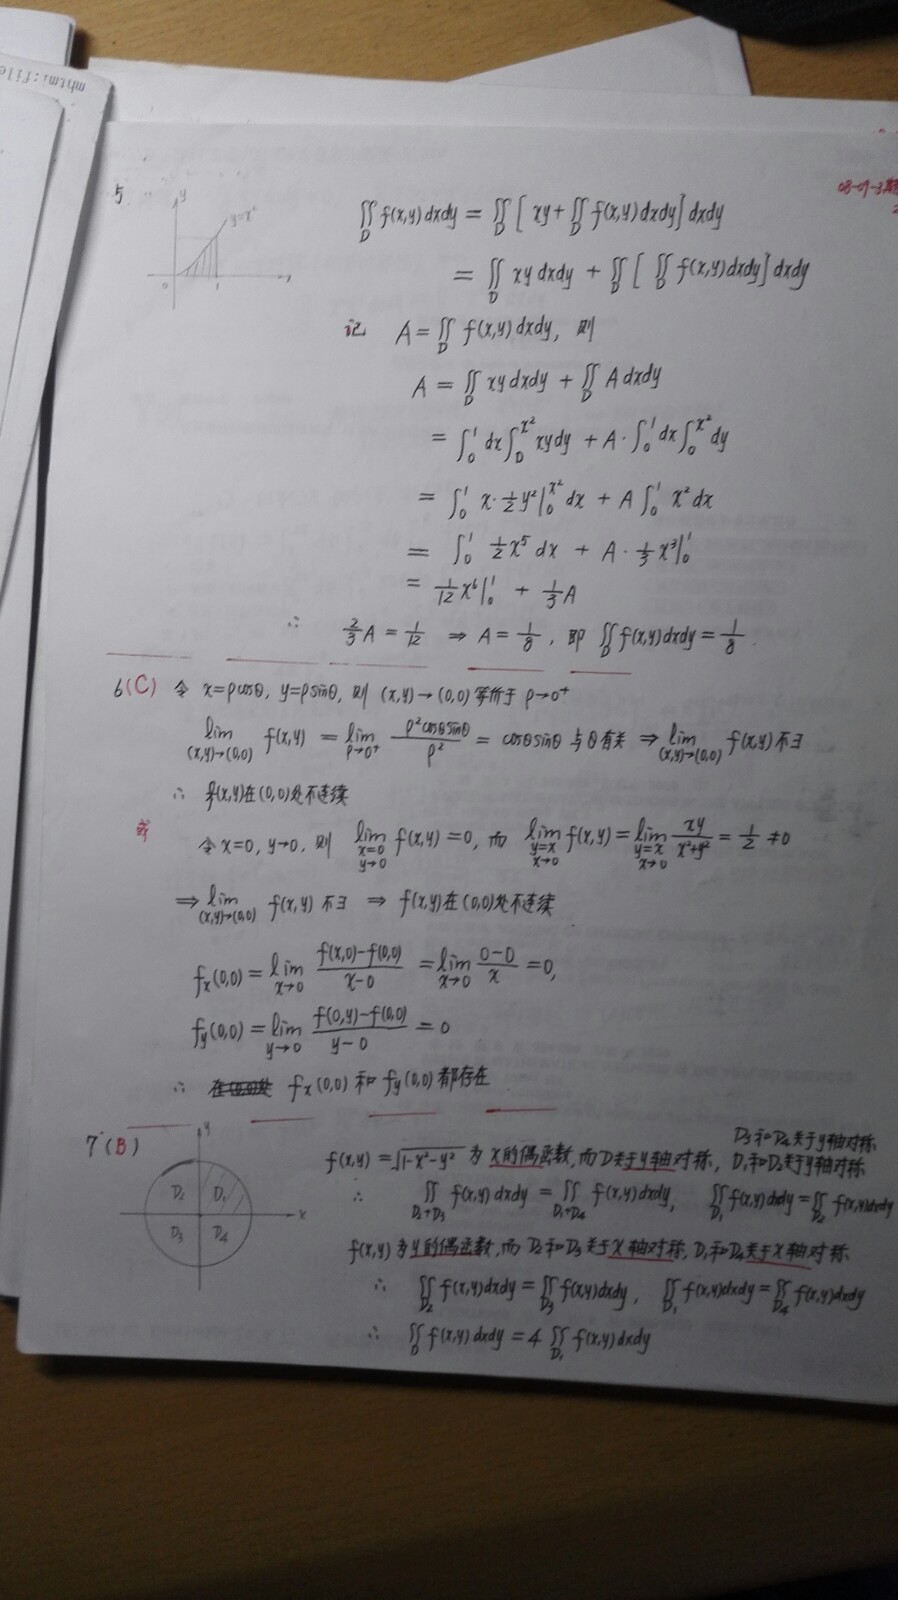 mhtml:file
08-09-3
5.
y
y=x²
0
1
x
∬_D f(x,y)dxdy = ∬_D [ xy + ∬_D f(x,y)dxdy ] dxdy
= ∬_D xy dxdy + ∬_D [ ∬_D f(x,y)dxdy ] dxdy
记 A = ∬_D f(x,y)dxdy, 则
A = ∬_D xy dxdy + ∬_D A dxdy
= ∫_0^1 dx ∫_0^{x²} xy dy + A·∫_0^1 dx ∫_0^{x²} dy
= ∫_0^1 x·½y²|_0^{x²} dx + A ∫_0^1 x² dx
= ∫_0^1 ½x⁵ dx + A·⅓x³|_0^1
= 1/12 x⁶|_0^1 + ⅓A
∴ ⅔A = 1/12 ⇒ A = 1/8, 即 ∬_D f(x,y)dxdy = 1/8.
6(C) 令 x=ρcosθ, y=ρsinθ, 则 (x,y)→(0,0) 等价于 ρ→0⁺
lim_{(x,y)→(0,0)} f(x,y) = lim_{ρ→0⁺} ρ²cosθsinθ/ρ² = cosθsinθ 与θ有关 ⇒ lim_{(x,y)→(0,0)} f(x,y) 不∃
∴ f(x,y)在(0,0)处不连续
或 令 x=0, y→0, 则 lim_{x=0, y→0} f(x,y)=0, 而 lim_{y=x, x→0} f(x,y) = lim_{y=x, x→0} xy/(x²+y²) = ½ ≠ 0
⇒ lim_{(x,y)→(0,0)} f(x,y) 不∃ ⇒ f(x,y)在(0,0)处不连续
f_x(0,0) = lim_{x→0} (f(x,0)-f(0,0))/(x-0) = lim_{x→0} (0-0)/x = 0,
f_y(0,0) = lim_{y→0} (f(0,y)-f(0,0))/(y-0) = 0
∴ f_x(0,0) 和 f_y(0,0) 都存在
7(B)
y
D₂ D₁
D₃ D₄
x
D₃和D₄关于y轴对称
f(x,y) = √(1-x²-y²) 为x的偶函数, 而D关于y轴对称, D₁和D₂关于y轴对称
∴ ∬_{D₂+D₃} f(x,y)dxdy = ∬_{D₁+D₄} f(x,y)dxdy, ∬_{D₁} f(x,y)dxdy = ∬_{D₂} f(x,y)dxdy
f(x,y)为y的偶函数, 而D₂和D₃关于x轴对称, D₁和D₄关于x轴对称
∴ ∬_{D₂} f(x,y)dxdy = ∬_{D₃} f(x,y)dxdy, ∬_{D₁} f(x,y)dxdy = ∬_{D₄} f(x,y)dxdy
∴ ∬_D f(x,y)dxdy = 4 ∬_{D₁} f(x,y)dxdy